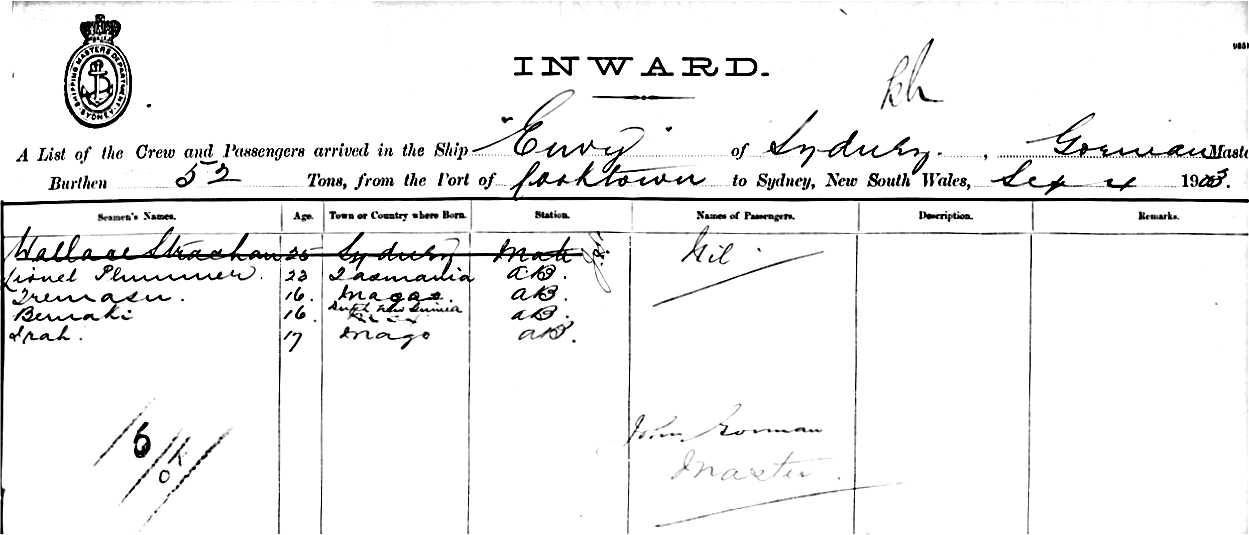 SHIPPING MASTERS DEPARTMENT. SYDNEY
INWARD.
A List of the Crew and Passengers arrived in the Ship "Envy" of Sydney. , Gorman Maste
Burthen 52 Tons, from the Port of Cooktown to Sydney, New South Wales, Sep 4 1903.
Seamen's Names. Age. Town or Country where Born. Station. Names of Passengers. Description. Remarks.
Wallace Strachan 25 Sydney Mate Nil
Lionel Plummer. 23 Tasmania AB.
16. AB.
Bemaki 16. Dutch New Guinea AB.
17 Mago AB.
6
OK
John Gorman
Master.